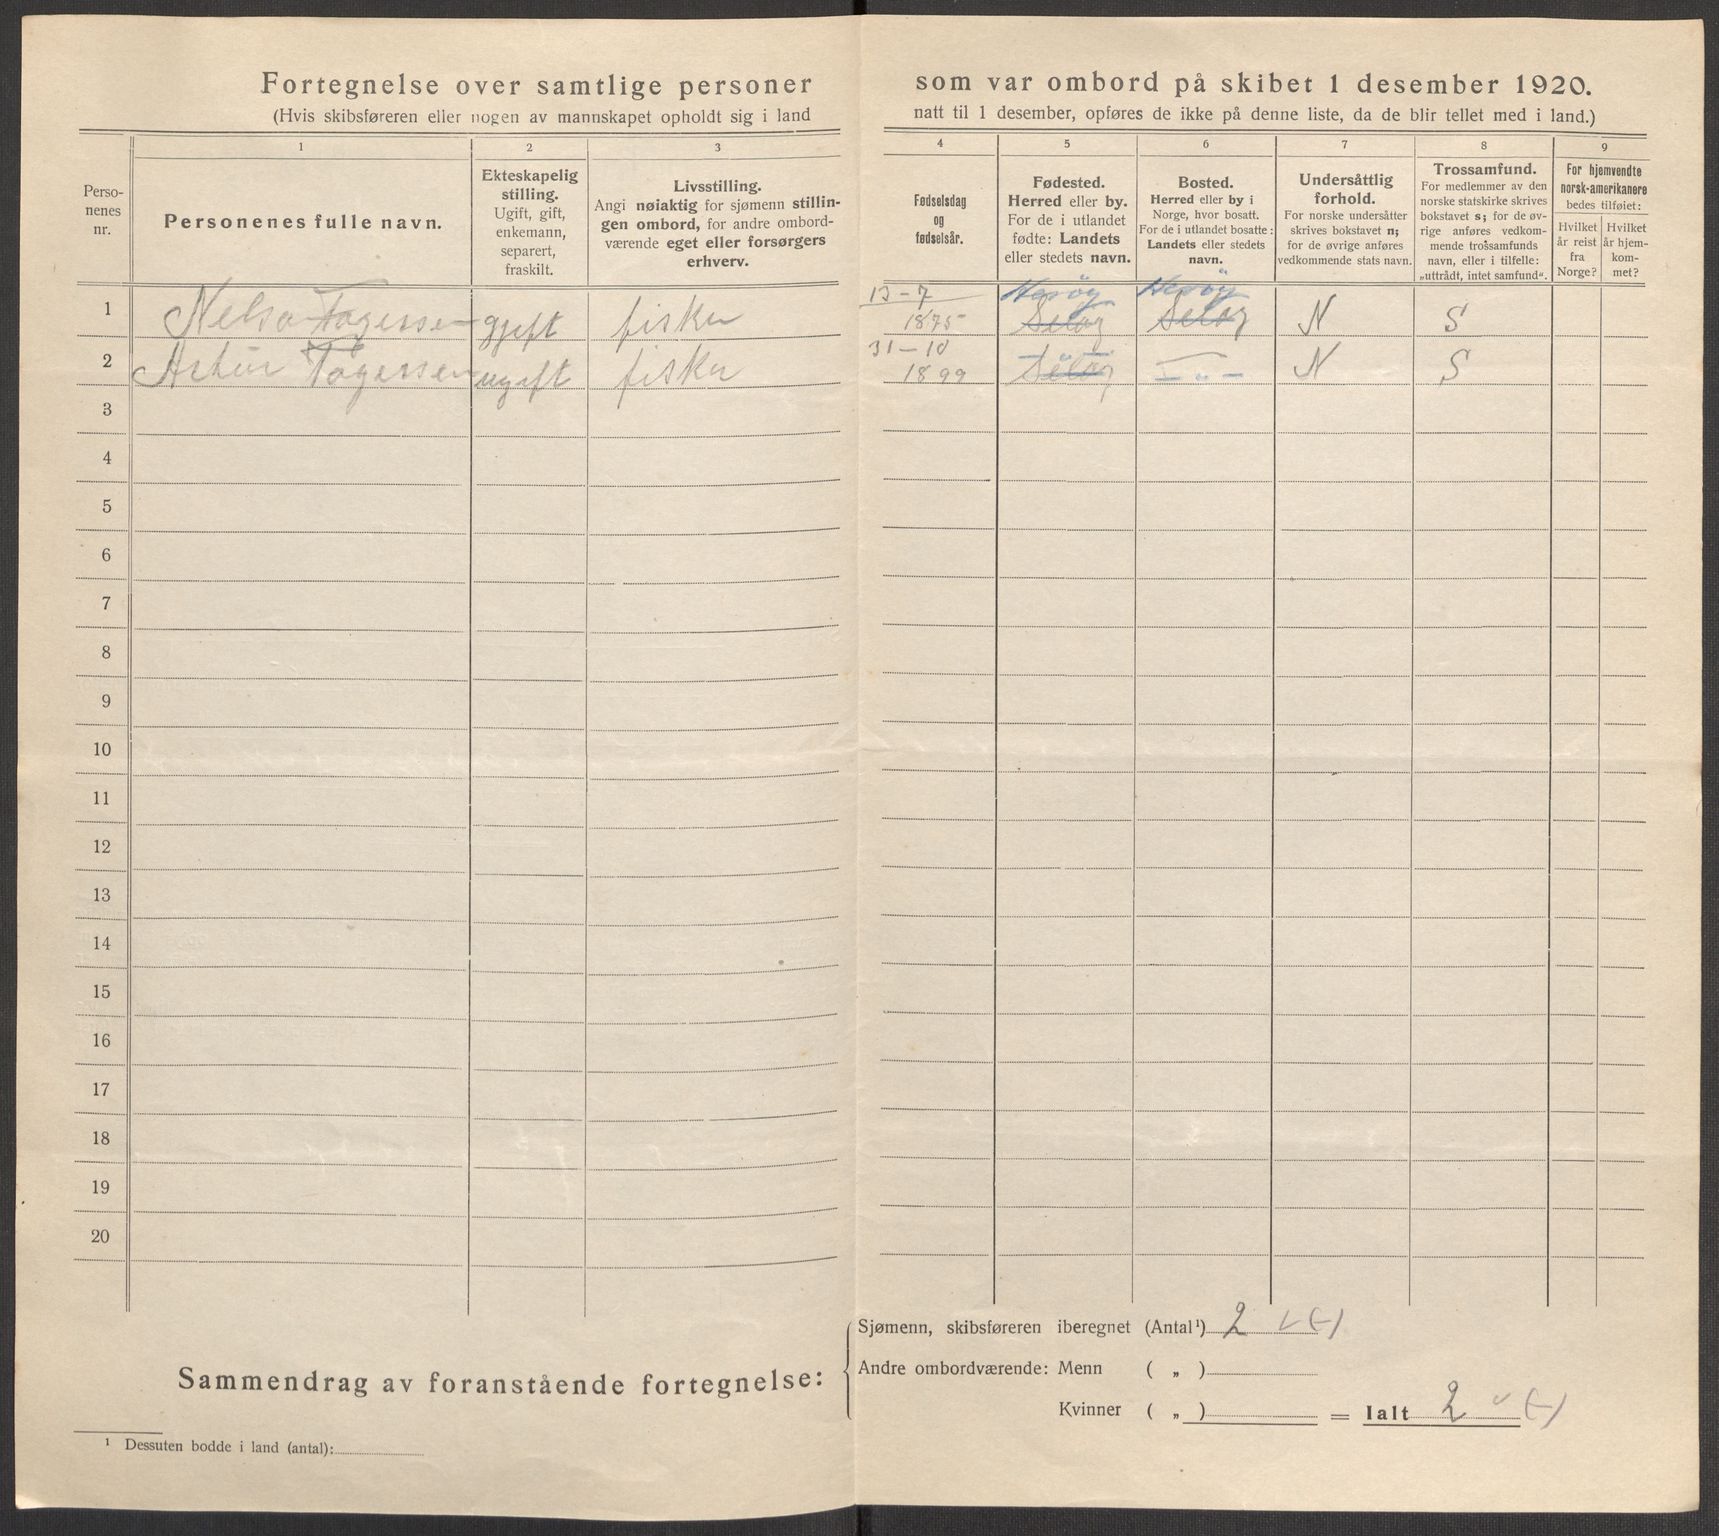 Fortegnelse over samtlige personer som var ombord på skibet 1 desember 1920.
(Hvis skibsføreren eller nogen av mannskapet opholdt sig i land natt til 1 desember, opføres de ikke på denne liste, da de blir tellet med i land.)
1 2 3 4 5 6 7 8 9
Perso-
nenes
nr.
Personenes fulle navn.
Ekteskapelig
stilling.
Ugift, gift,
enkemann,
separert,
fraskilt.
Livsstilling.
Angi nøiaktig for sjømenn stillin-
gen ombord, for andre ombord-
værende eget eller forsørgers
erhverv.
Fødselsdag
og
fødselsår.
Fødested.
Herred eller by.
For de i utlandet
fødte: Landets
eller stedets navn.
Bosted.
Herred eller by i
Norge, hvor bosatt.
For de i utlandet bosatte:
Landets eller stedets
navn.
Undersåttlig
forhold.
For norske undersåtter
skrives bokstavet n;
for de øvrige anføres
vedkommende stats navn.
Trossamfund.
For medlemmer av den
norske statskirke skrives
bokstavet s; for de øv-
rige anføres vedkom-
mende trossamfunds
navn, eller i tilfelle:
„uttrådt, intet samfund“.
For hjemvendte
norsk-amerikanere
bedes tilføiet:
Hvilket
år reist
fra
Norge?
Hvilket
år hjem-
kom-
met?
13-7 Herøy Herøy
1 gjift fisker 1875 Seløy Seløy N S
31-10
2 ugift fisker 1899 Seløy -"- N S
3
4
5
6
7
8
9
10
11
12
13
14
15
16
17
18
19
20
Sammendrag av foranstående fortegnelse:
Sjømenn, skibsføreren iberegnet (Antal¹) 2 v (-)
Andre ombordværende: Menn ( „ )
Kvinner ( „ ) = Ialt 2 v (-)
¹ Dessuten bodde i land (antal):